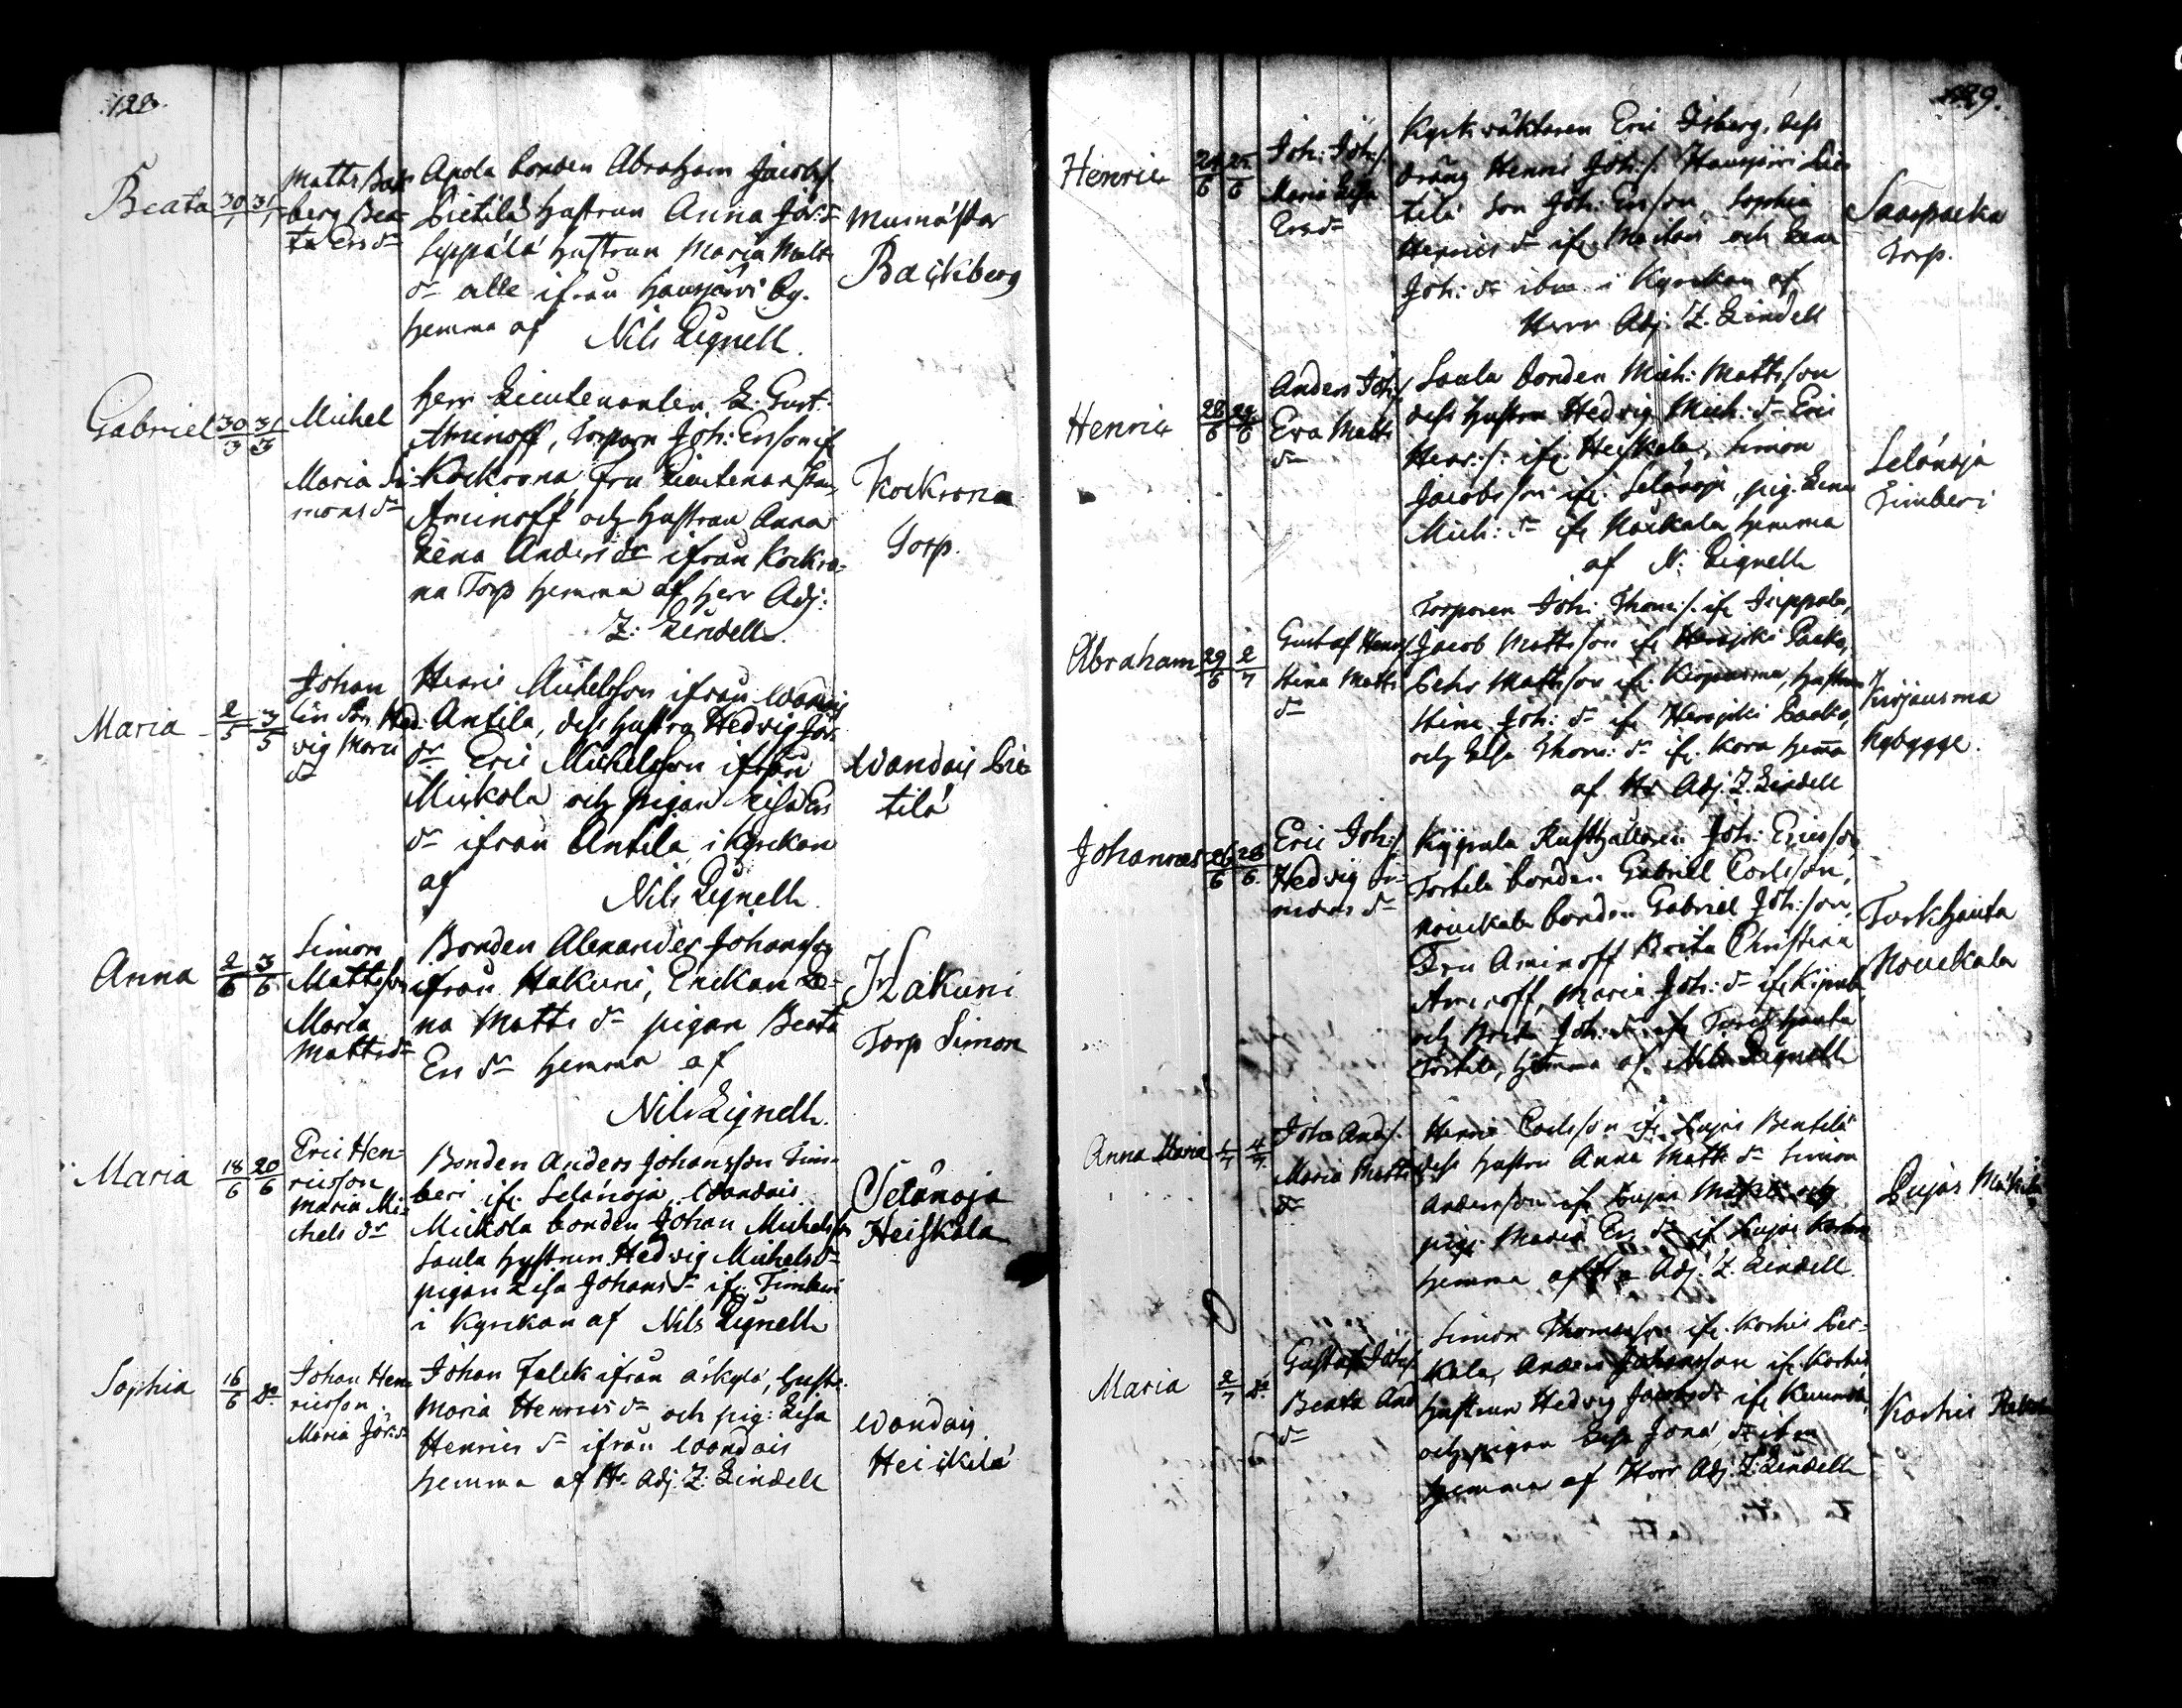 128.
Beata 30/1 31/1
Matts Back
berg Bea-
ta Ers dr
Apola bonden Abraham Jacobs/.
Pietilä hustrun Anna Jör: dr
Seppälä hustrun Maria Matts
dr alle ifrån Hausjärvi by.
hemma af Nils Lignell.
Backberg
Gabriel 30/3 31/3
Michel
Maria Si-
mons dr
Herr Lieutenanten L: Gust:
Aminoff, Torparn Joh: Ersson if.
Kockrona Fru Lieutenanskan
Aminoff och hustrun Anna
Lena Anders dr ifrån Kockro-
na Torp hemma af Herr Adj:
Z: Lindell.
Kockrona
Torp.
Maria 2/5 3/5
Johan
Hed-
vig Marti
dr
Henric Michelsson ifrån Wandais
Antila, dess hustru Hedvig Jör:
dr Eric Michelsson ifrån
Mickola och pigan Lisa Ers
dr ifrån Antila i Kyrckan
af Nils Lignell.
Wandais Pie
tilä
Anna 2/6 3/6
Simon
Mattsson
Maria
Matts dr
Bonden Alexander Johansson
ifrån Hakuni, Enckan Le-
na Matts dr pigan Beata
Ers dr hemma af
Nils Lignell.
Hakuni
Torp Simon
Maria 18/6 20/6
Eric Hen-
ricsson
Maria Mi-
chels dr
Bonden Anders Johansson Tim-
beri if. Selänoja, Wandais
Mickola bonden Johan Michelsson
Saula hustrun Hedvig Michels dr
pigan Lisa Johans dr if. Timberi
i Kyrckan af Nils Lignell
Selänoja
Heiskala
Sophia 16/6 do
Johan Hen-
ricsson.
Maria Jör: dr
Johan Falck ifrån äikylä, hustr.
Maria Henrics dr och pig: Lisa
Henrics dr ifrån Wandais
hemma af Hr. Adj. Z: Lindell
Wandais
Heickilä
129.
Henric 24/6 25/6
Joh: Joh:/.
Maria Lisa
Ers dr
Kyrkväktaren Eric Isberg, dess
dräng Henric Joh:/. Hausjärvi Pie
tilä Son Joh: Ersson, Sophia
Henrics dr if. och Lena
Joh: dr ibm i Kyrckan af
Herr Adj. Z. Lindell
Torp.
Henric 28/6 29/6
Anders Joh:/.
Eva Matts
dr
Saula bonden Mich: Mattsson
dess hustru Hedvig Mich: dr Eric
Henr:/. if. Heiskala, Simon
Jacobsson if. Selänoja, pig. Lena
Mich: dr if. Nockala hemma
af N: Lignell
Selänoja
Timberi
Abraham 29/6 2/7
Gustaf Henr:/.
Stina Matts
dr
Torparen Joh: Thom:/. if. Seppälä,
Jacob Mattsson if. Herajoki Paako,
Pehr Mattsson if. Kirjausma, hustrun
Stina Joh: dr if. Herajoki Paako,
och Lisa Thom: dr if. Kora hemma
af Hr Adj. Z. Lindell
Kirjausma
Nybygge.
Johannes 26/6 28/6
Eric Joh:/.
Hedvig Si-
mons dr
Kypala Rusthållaren Joh: Ericsson
Torkela bonden Gabriel Carlsson,
bonden Gabriel Joh:son,
Fru Aminoff Brita Christina
Aminoff, Maria Joh: dr if. Kipala
och Brita Joh: dr if. Torckhauta
hemma af Nils Lignell
Torkhauta
Anna Maria 1/7 4/7
Joh: And:/.
Maria Matts
dr
Henric Carlsson if. Pujas Bentilä
dess hustru Anna Matts dr Simon
Andersson if. Pujas och
pig: Maria Ers dr if. Pujas
hemma af Hr Adj. Z. Lindell.
Pujas
Maria 2/7 do
Gustaf Joh:/.
Beata And
dr
Simon Thomasson if. Karhis Per-
kala, Anders Johansson if. Karhis,
hustrun Hedvig Jacobs dr if.
och pigan Lisa Jona dr ibm
hemma af Herr Adj. Z: Lindell
Karhis